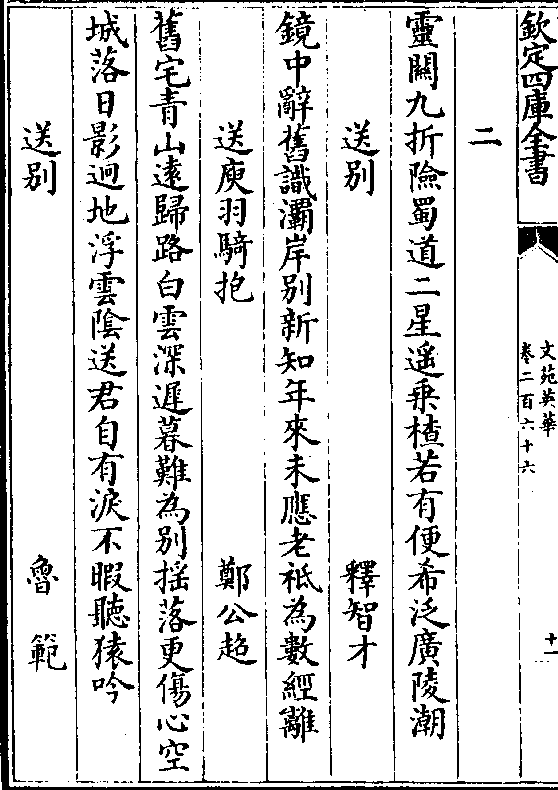 欽定四庫全書
文苑英華
卷二百六十六
十一
二
靈關九折險蜀道二星遥乗楂若有便希泛廣陵潮
送别 釋智才
鏡中辭舊識灞岸别新知年來未應老祗為數經離
送庾羽騎抱 鄭公超
舊宅青山遠歸路白雲深遲暮難為别揺落更傷心空
城落日影迥地浮雲陰送君自有淚不暇聽猿吟
送别 魯範